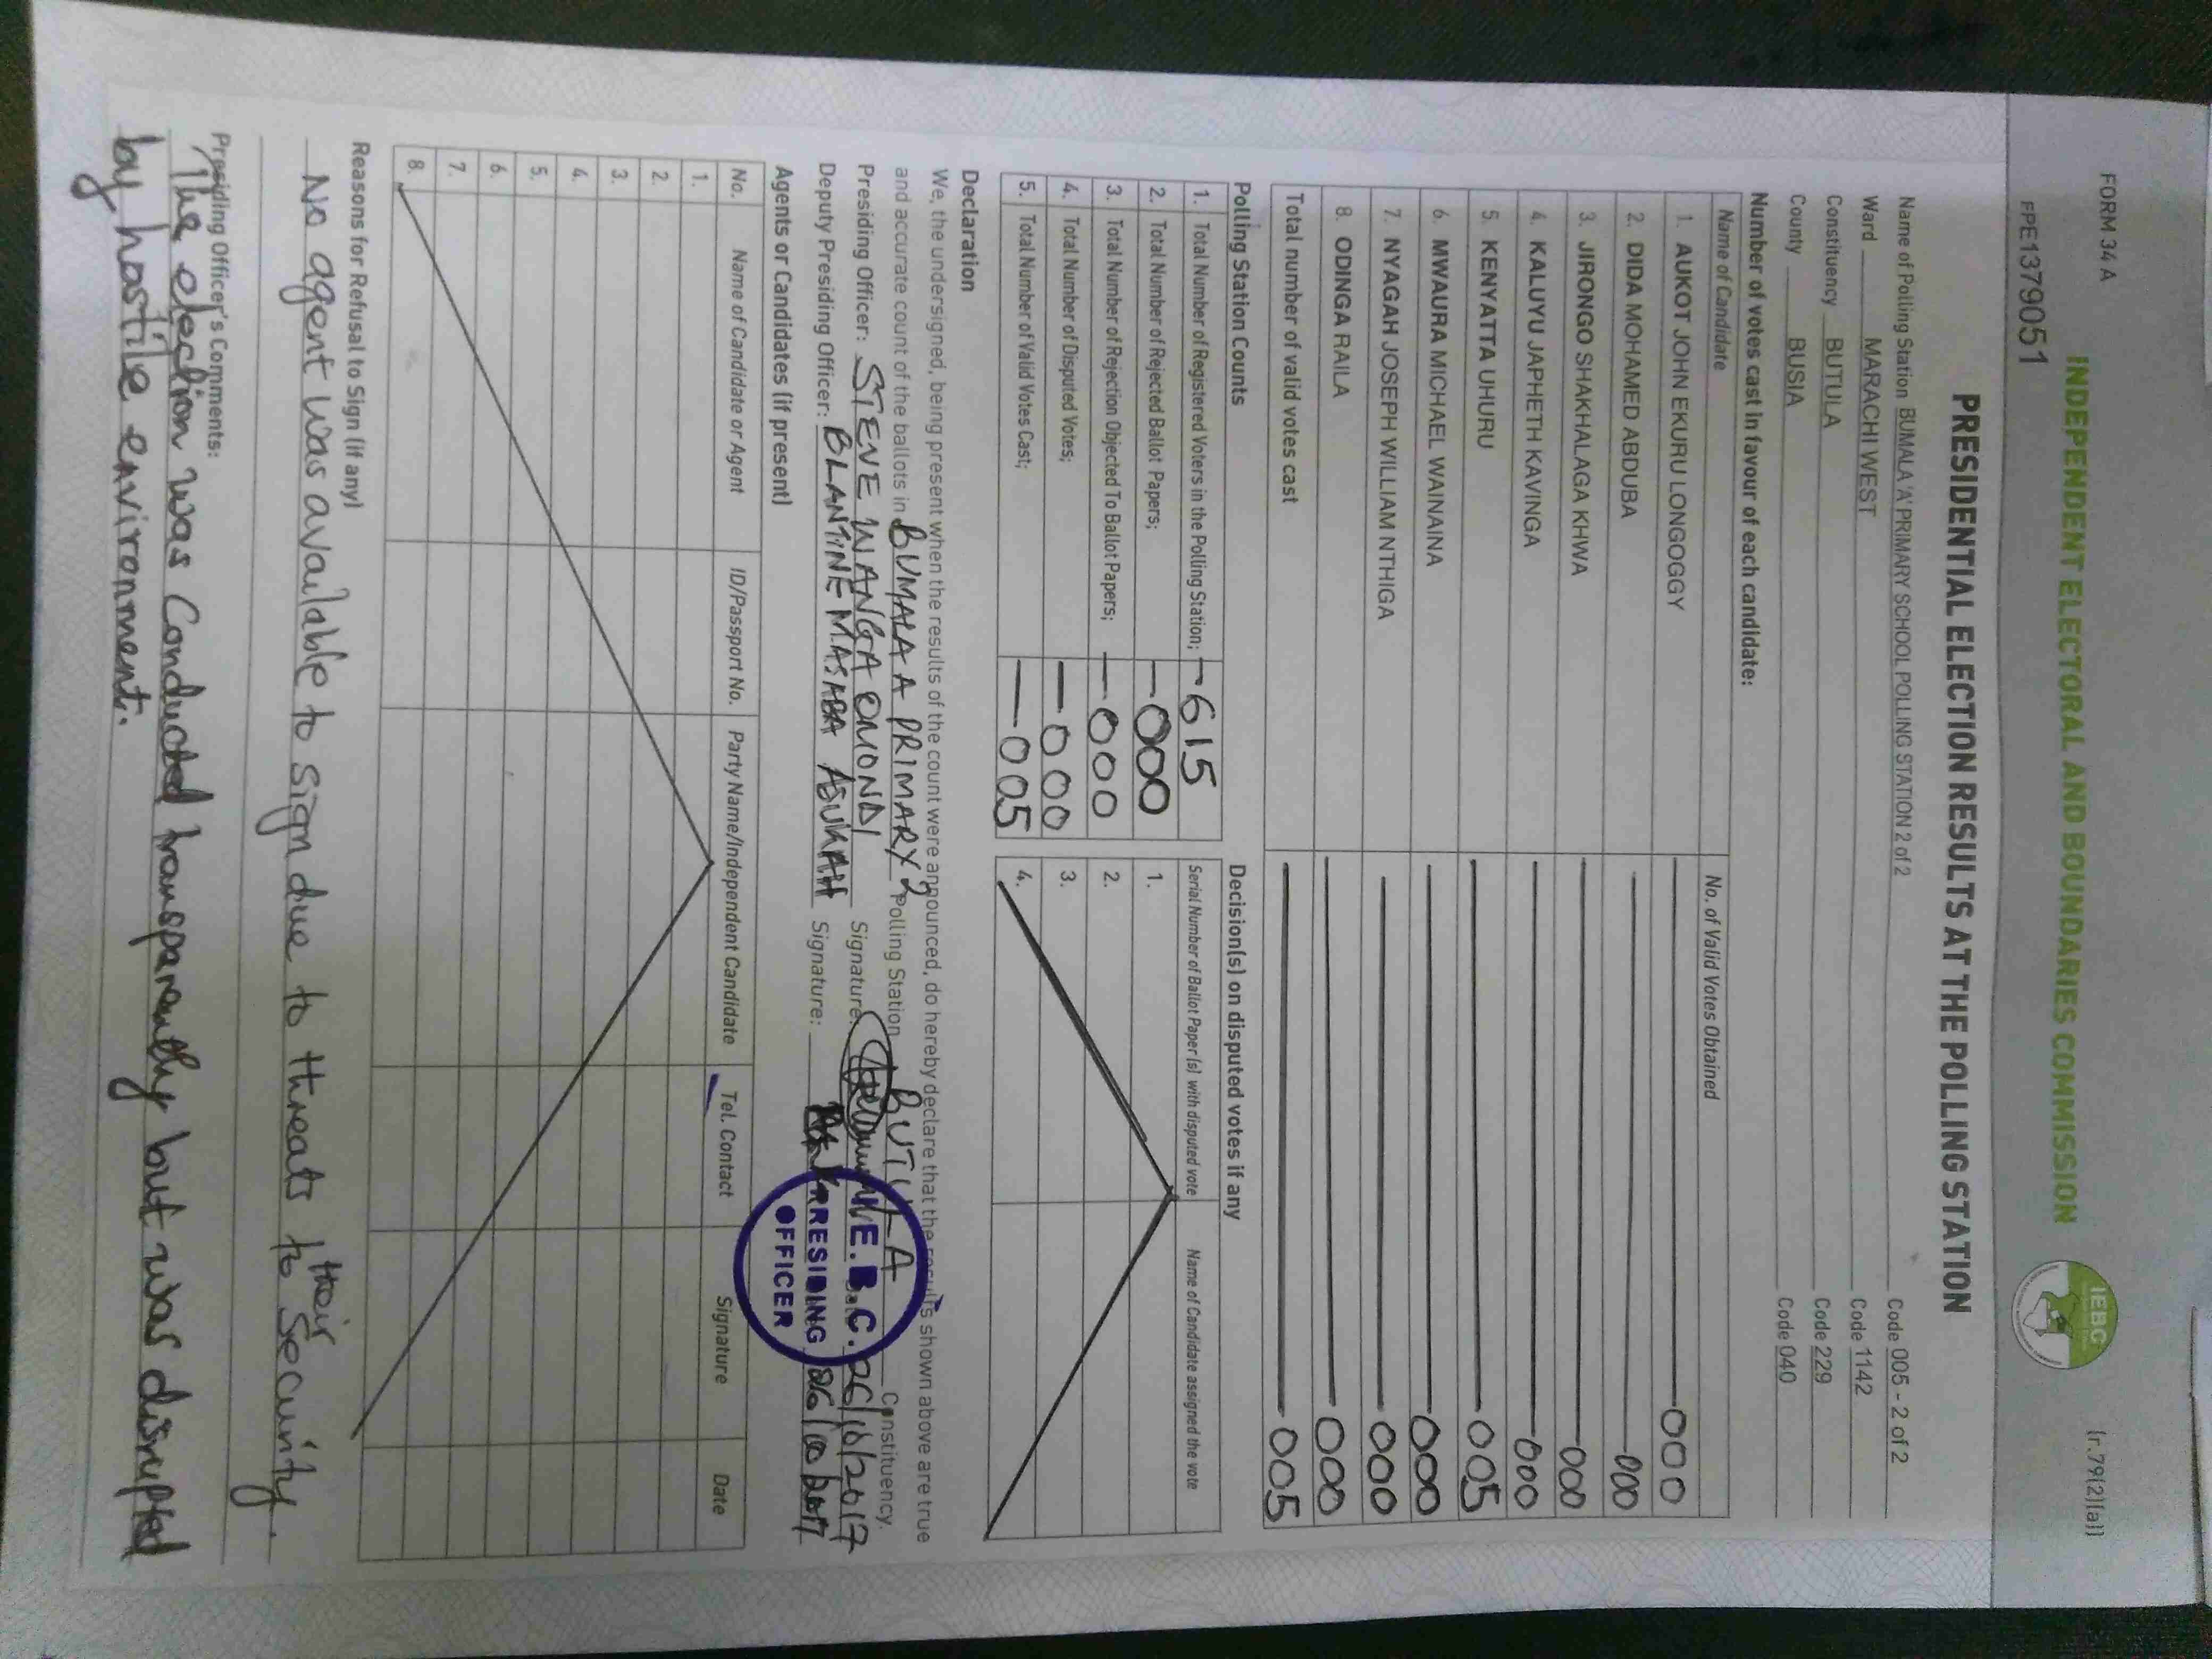 FORM 34 A
(r.79(2)(a))
INDEPENDENT ELECTORAL AND BOUNDARIES COMMISSION
IEBC
FPE1379051
PRESIDENTIAL ELECTION RESULTS AT THE POLLING STATION
Name of Polling Station BUMALA 'A' PRIMARY SCHOOL POLLING STATION 2 of 2 Code 005 - 2 of 2
Ward MARACHI WEST Code 1142
Constituency BUTULA Code 229
County BUSIA Code 040
Number of votes cast in favour of each candidate:
Name of Candidate No. of Valid Votes Obtained
1. AUKOT JOHN EKURU LONGOGGY 000
2. DIDA MOHAMED ABDUBA 000
3. JIRONGO SHAKHALAGA KHWA 000
4. KALUYU JAPHETH KAVINGA 000
5. KENYATTA UHURU 005
6. MWAURA MICHAEL WAINAINA 000
7. NYAGAH JOSEPH WILLIAM NTHIGA 000
8. ODINGA RAILA 000
Total number of valid votes cast 005
Polling Station Counts
1. Total Number of Registered Voters in the Polling Station; 615
2. Total Number of Rejected Ballot Papers; 000
3. Total Number of Rejection Objected To Ballot Papers; 000
4. Total Number of Disputed Votes; 000
5. Total Number of Valid Votes Cast; 005
Decision(s) on disputed votes if any
Serial Number of Ballot Paper (s) with disputed vote Name of Candidate assigned the vote
1.
2.
3.
4.
Declaration
We, the undersigned, being present when the results of the count were announced, do hereby declare that the results shown above are true
and accurate count of the ballots in BUMALA A PRIMARY 2 Polling Station BUTULA Constituency.
Presiding Officer: STEVE WANGA OMONDI Signature: 26/10/2017
Deputy Presiding Officer: BLANTINE MASABA ASUKAH Signature: 26/10/2017
I.E.B.C.
PRESIDING
OFFICER
Agents or Candidates (if present)
No. Name of Candidate or Agent ID/Passport No. Party Name/Independent Candidate Tel. Contact Signature Date
1.
2.
3.
4.
5.
6.
7.
8.
Reasons for Refusal to Sign (if any)
No agent was available to sign due to threats to their security.
Presiding Officer's Comments:
The election was Conducted transparently but was disrupted
by hostile environment.